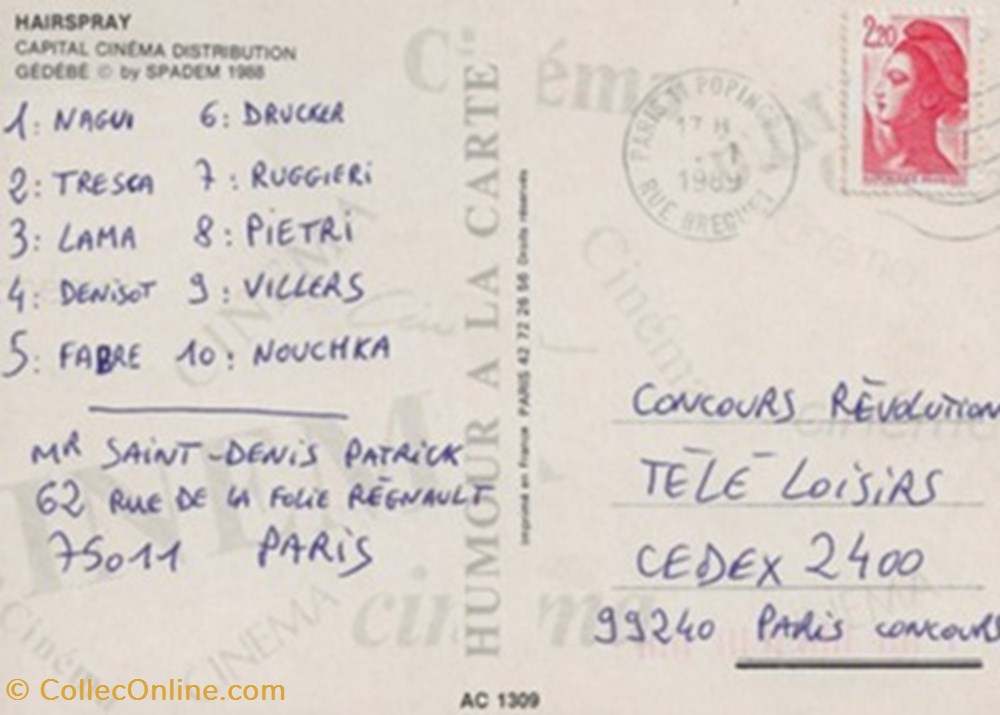 HAIRSPRAY
CAPITAL CINÉMA DISTRIBUTION
GÉDÉBÉ © by SPADEM 1988
1: NAGUI 6: DRUCKER
2: TRESCA 7: RUGGIERI
3: LAMA 8: PIETRI
4: DENISOT 9: VILLERS
5: FABRE 10: NOUCHKA
MR SAINT-DENIS PATRICK
62 RUE DE LA FOLIE RÉGNAULT
75011 PARIS
HUMOUR A LA CARTE
Imprimé en France PARIS 42 72 26 56 Droits réservés
PARIS 11 POPINC
17 H
1989
RUE BREGUET
2,20
CONCOURS RÉVOLUTION
TÉLÉ LOISIRS
CEDEX 2400
99240 PARIS CONCOURS
Cinéma
Cinéma
cinéma
CINEMA
CINEMA
cinéma
Cinéma
CINEMA
AC 1309
© CollecOnline.com